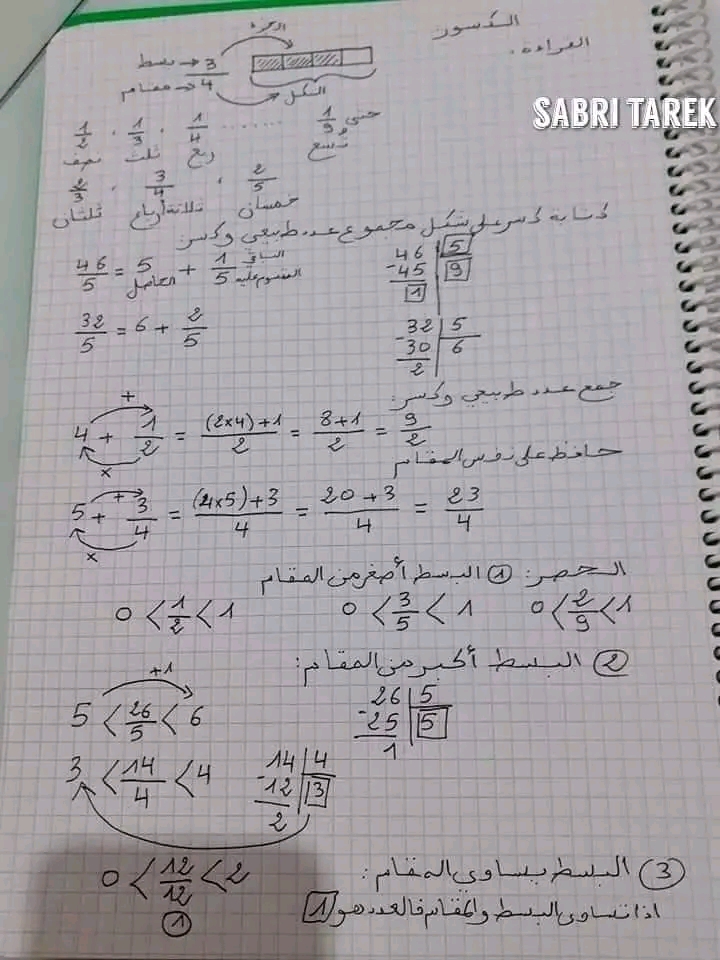 الكسور
القراءة.
الجزء
بسط → 3
مقام → 4
الشكل
SABRI TAREK
1/2 , 1/3 , 1/4 ....... حتى 1/9
نصف ثلث ربع تُسع
2/3 , 3/4 , 2/5
ثلثان ثلاثة أرباع خمسان
كتابة كسر على شكل مجموع عدد طبيعي وكسر
46/5 = 5 + 1/5 الباقي المقسوم عليه
الحاصل
46 | 5
-45 | 9
1
32/5 = 6 + 2/5
-32 | 5
30 | 6
2
جمع عدد طبيعي وكسر:
+
4 + 1/2 = (2x4)+1/2 = 8+1/2 = 9/2
x
حافظ على نفس المقام
+
5 + 3/4 = (4x5)+3/4 = 20+3/4 = 23/4
x
الحصر: ① البسط أصغر من المقام
0 < 1/2 < 1 0 < 3/5 < 1 0 < 2/9 < 1
② البسط أكبر من المقام:
+1
5 < 26/5 < 6
26 | 5
-25 | 5
1
3 < 14/4 < 4
14 | 4
-12 | 3
2
③ البسط يساوي المقام:
0 < 12/12 < 2
①
اذا تساوى البسط والمقام فالعدد هو 1